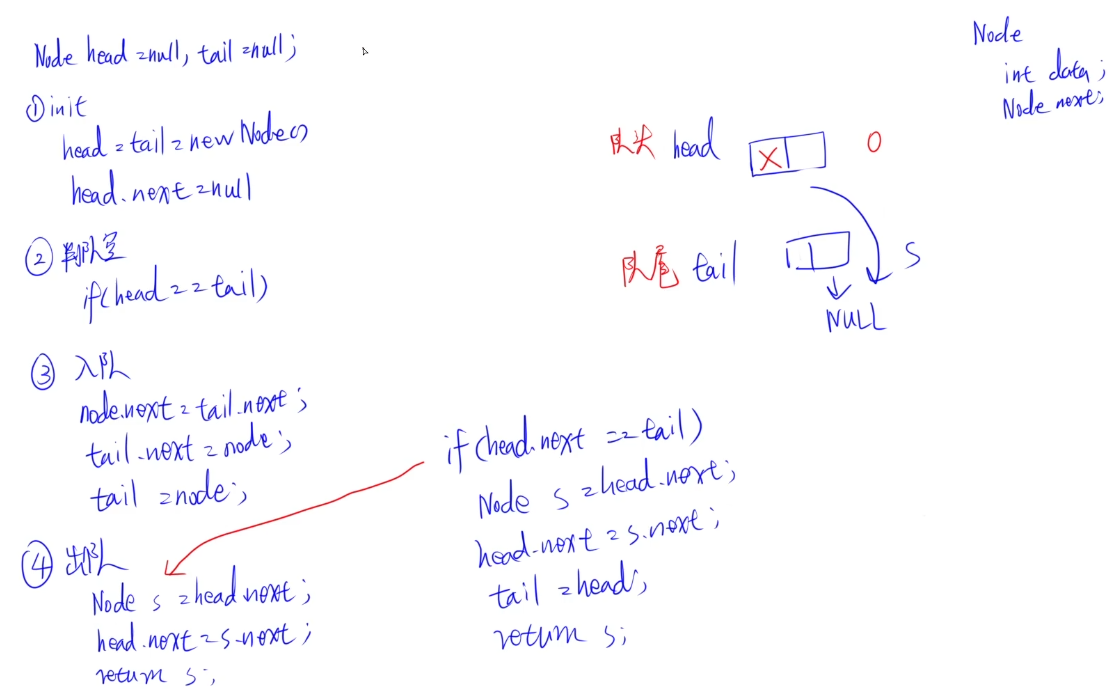 Node head=null, tail=null;
①init
head=tail=new Node()
head.next=null
② 判队空
if(head==tail)
③ 入队
node.next=tail.next;
tail.next=node;
tail=node;
④ 出队
Node s=head.next;
head.next=s.next;
return s;
if(head.next==tail)
Node s=head.next;
head.next=s.next;
tail=head;
return s;
队头 head X 0
队尾 tail S
NULL
Node
int data;
Node next;